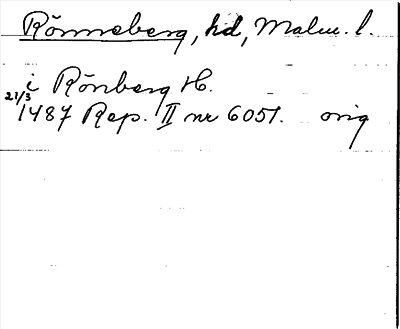 Rönneberg, hd, Malm. l.
i Rönberg H.
21/3
1487 Rep. II nr 6051. orig